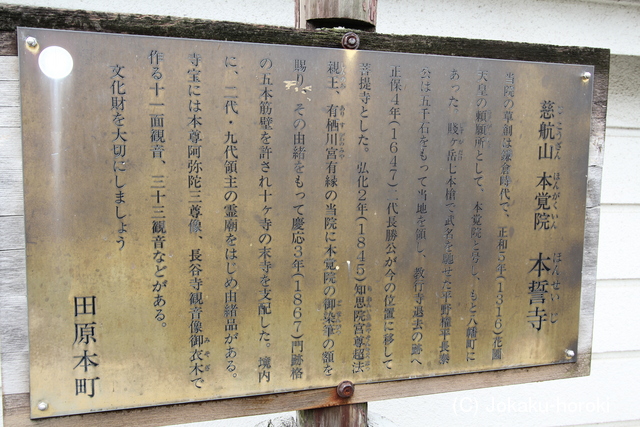 慈航山 本覚院 本誓寺
じこうざん ほんがくいん ほんせいじ
当院の草創は鎌倉時代で、正和5年(1316)花園
天皇の頼願所として、本覚院と号し、もと八幡町に
あった。賤ヶ岳七本槍で武名を馳せた平野権平長泰
公は五千石をもって当地を領し、教行寺退去の跡へ
正保4年(1647)二代長勝公が今の位置に移して
菩提寺とした。弘化2年(1845)知恩院宮尊超法
親王、有栖川宮有縁の当院に本覚院の御染筆の額を
賜り、その由緒をもって慶応3年(1867)門跡格
の五本筋壁を許され十ヶ寺の末寺を支配した。境内
に、二代・九代領主の霊廟をはじめ由緒品がある。
寺宝には本尊阿弥陀三尊像、長谷寺観音像御衣木で
作る十一面観音、三十三観音などがある。
文化財を大切にしましょう
田原本町
(C) Jokaku-horoki